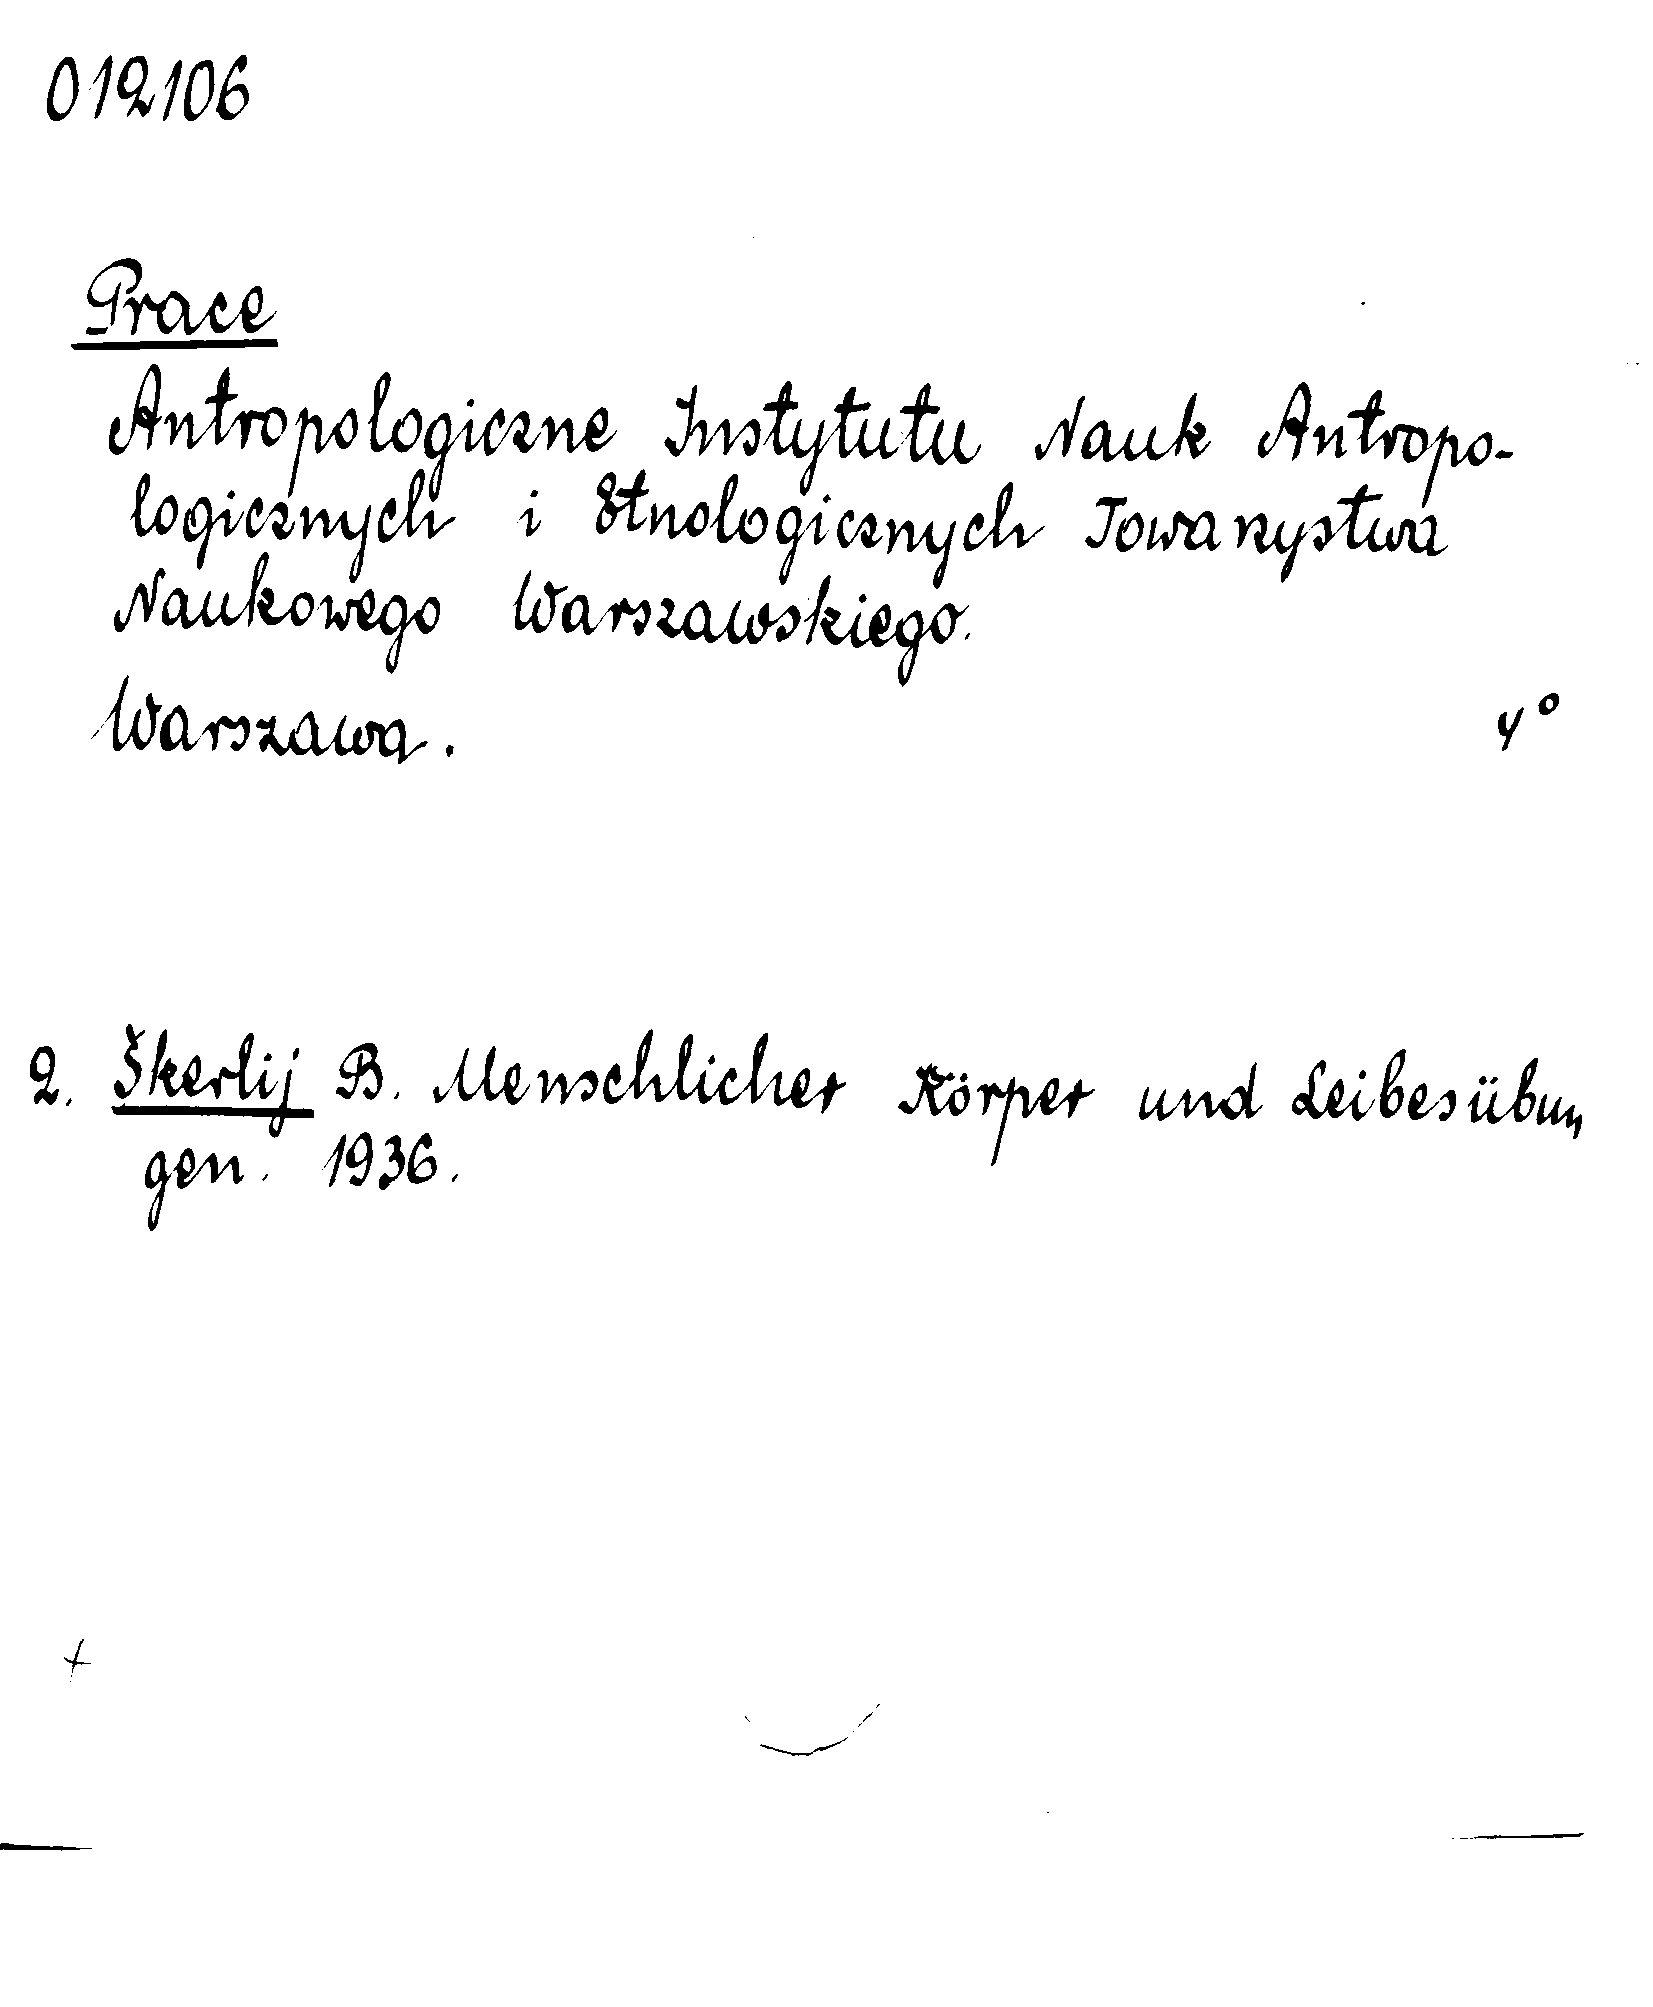 012106
Prace
Antropologiczne Instytutu Nauk Antropo-
logicznych i Etnologicznych Towarzystwa
Naukowego Warszawskiego.
Warszawa. 4°
2. Škerlij B. Menschlicher Körper und Leibesübun
gen. 1936.
+